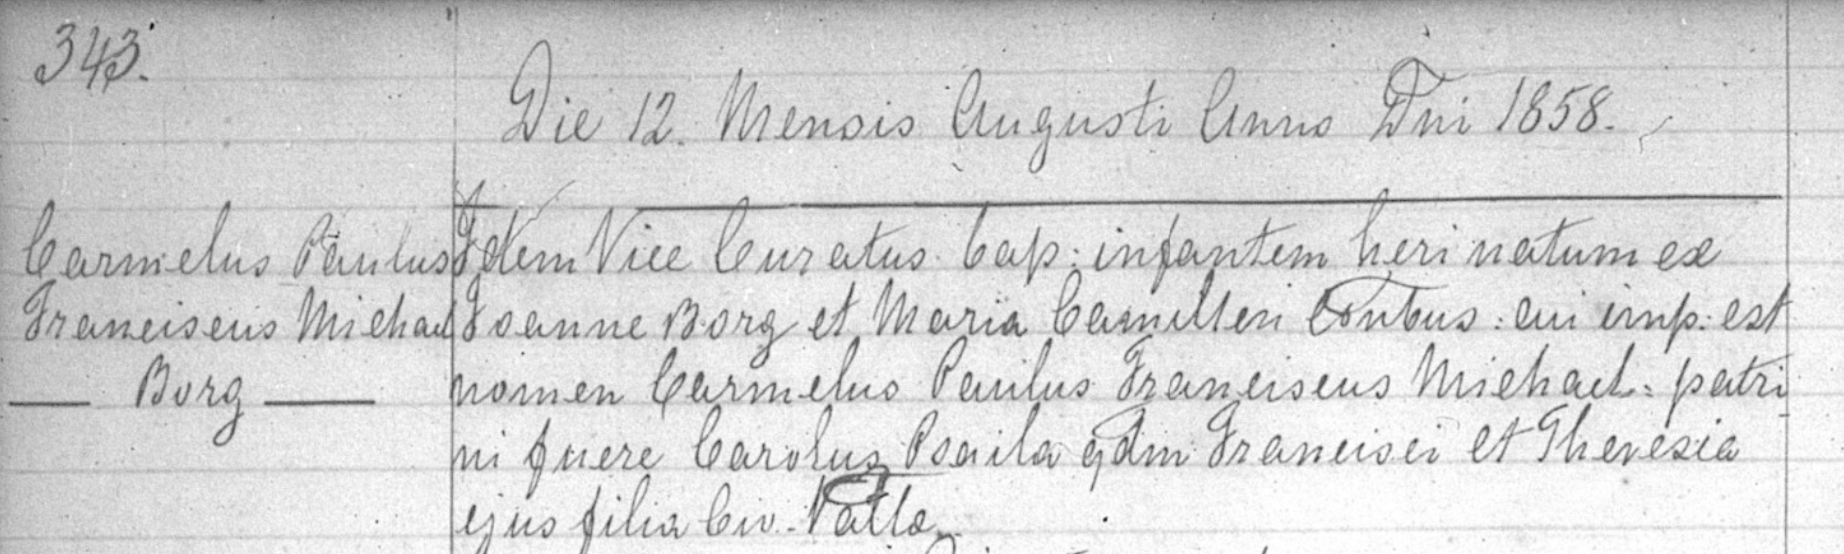 343.
Die 12. Mensis Augusti Anno Dni 1858.
Carmelus Paulus
Franciscus Michael
Borg
Idem Vice Curatus bap: infantem heri natum ex
Joanne Borg et Maria Camilleri Conbus: cui imp: est
nomen Carmelus Paulus Franciscus Michael: patri
ni fuere Carolus Psaila qdm Francisci et Theresia
ejus filia Civ. Vallæ